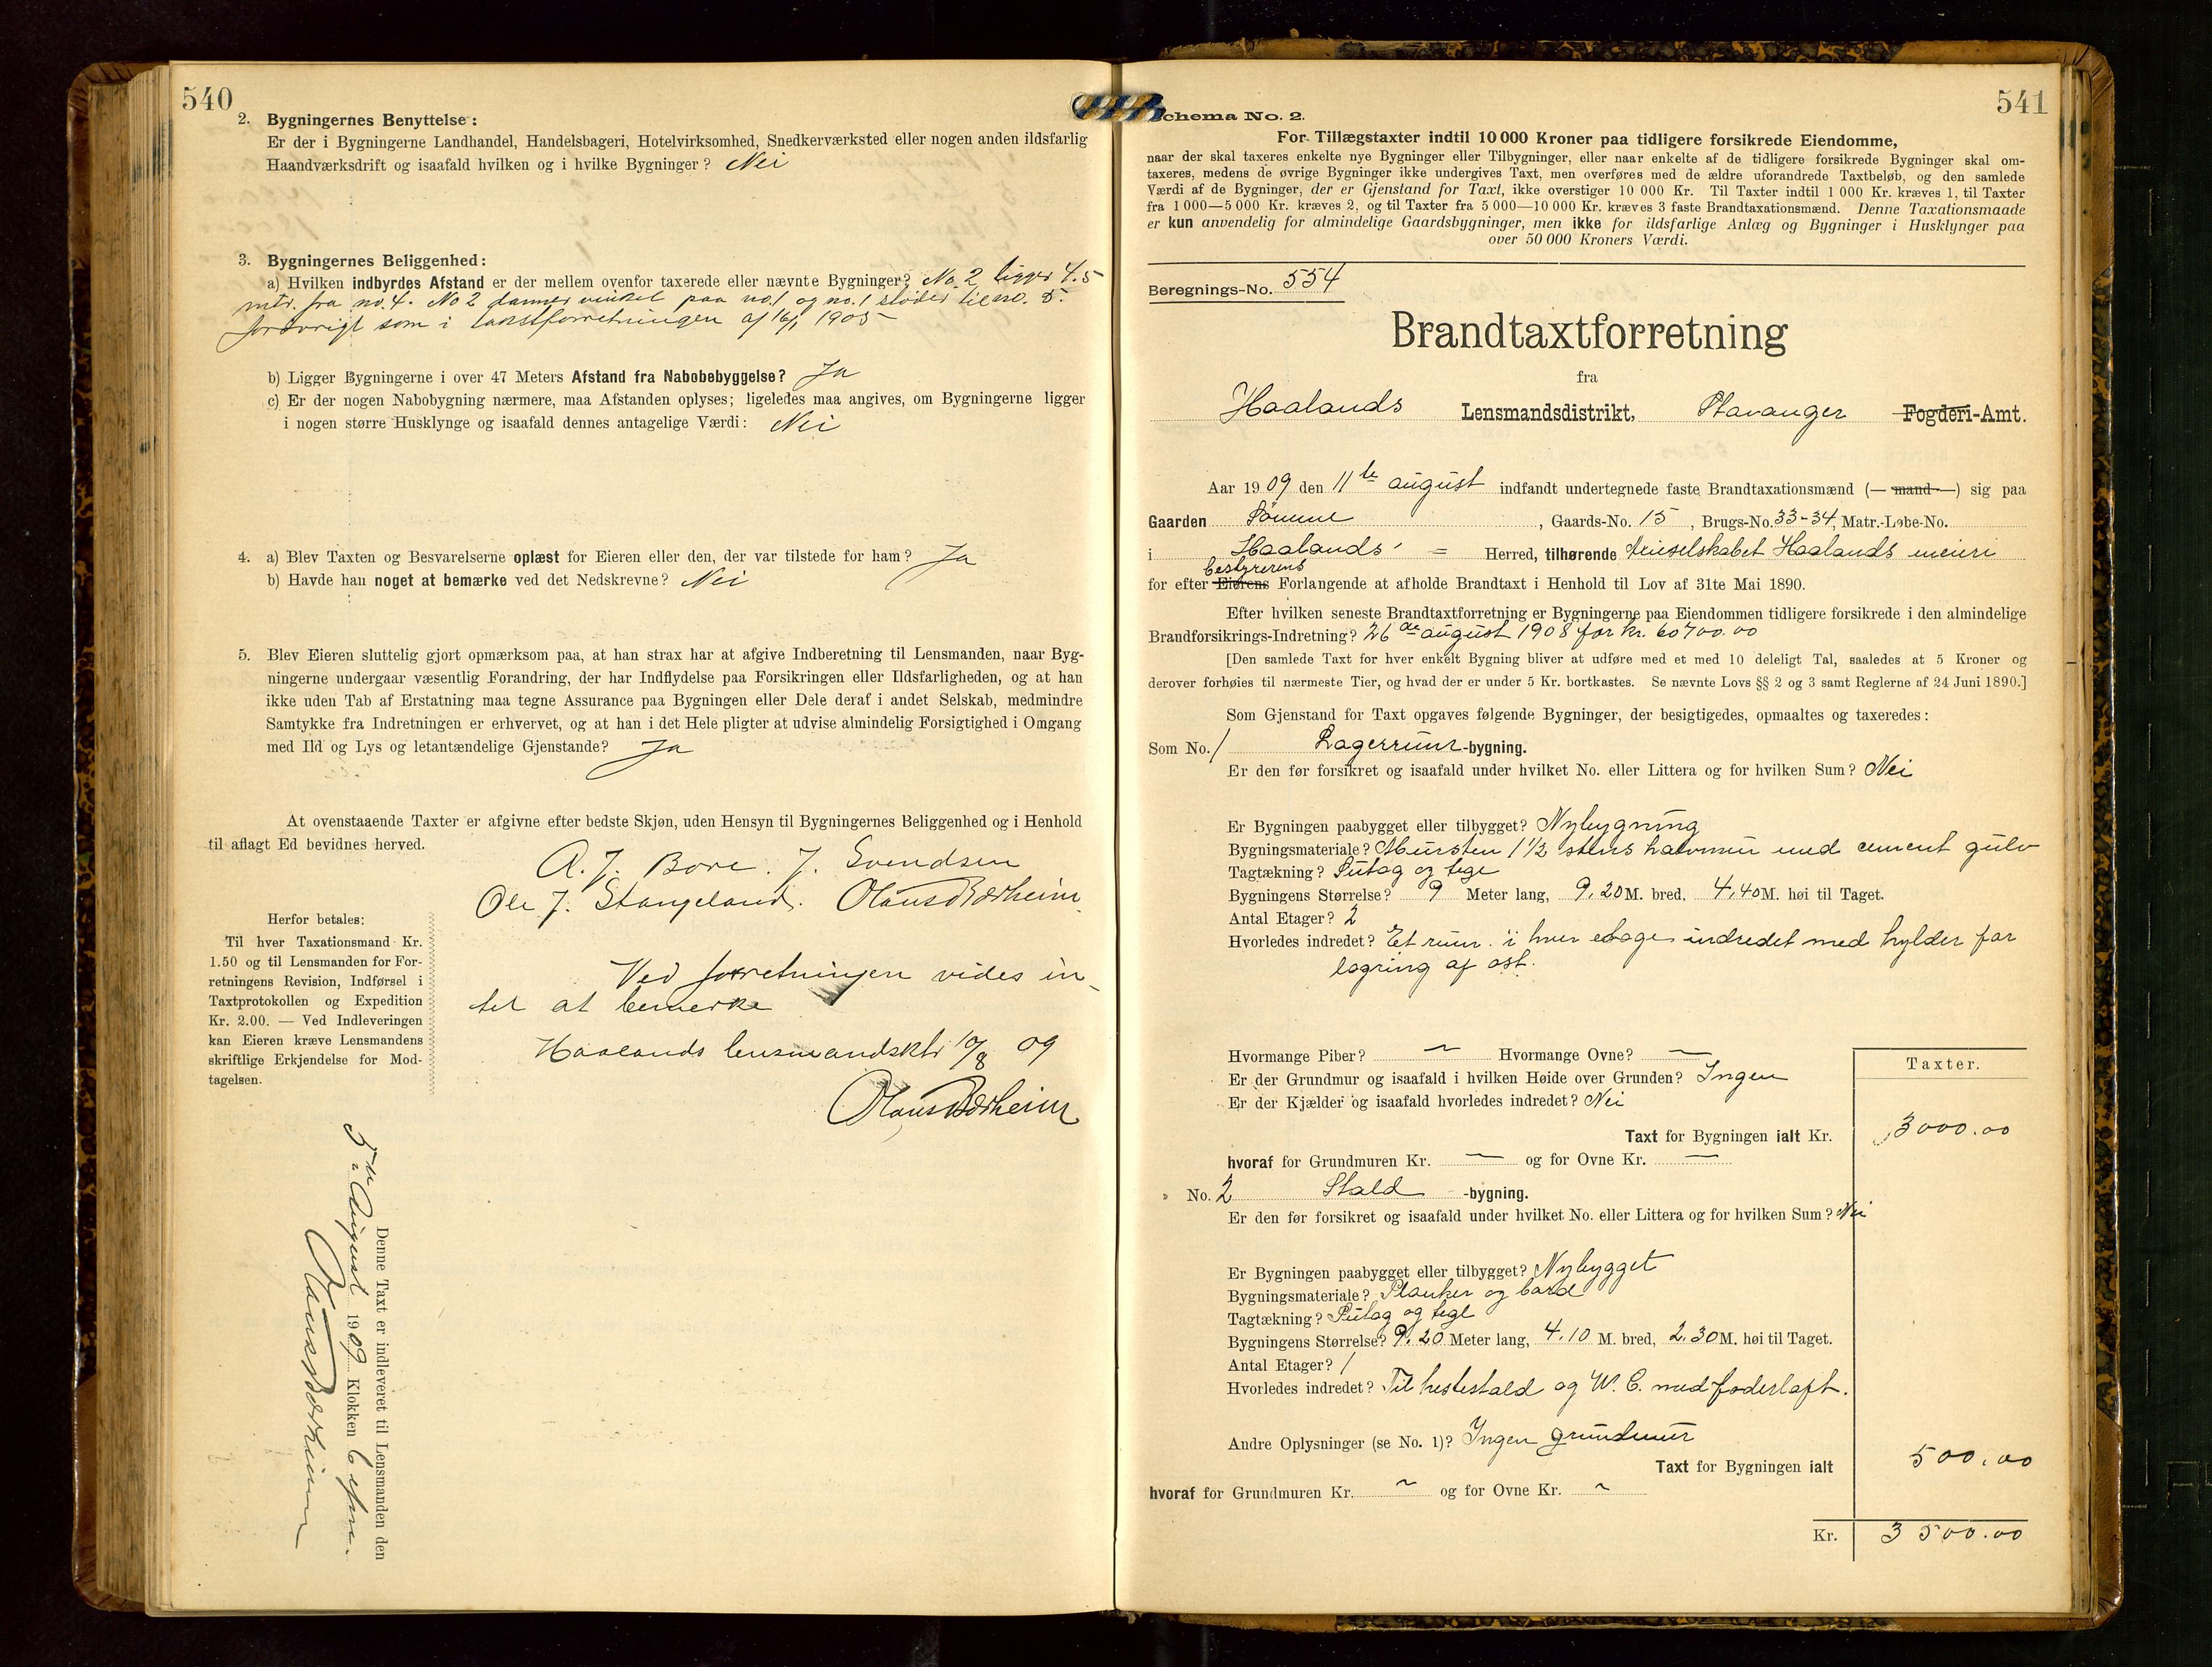 540
2. Bygningernes Benyttelse:
Er der i Bygningerne Landhandel, Handelsbageri, Hotelvirksomhed, Snedkerværksted eller nogen anden ildsfarlig
Haandværksdrift og isaafald hvilken og i hvilke Bygninger? Nei
3. Bygningernes Beliggenhed:
a) Hvilken indbyrdes Afstand er der mellem ovenfor taxerede eller nævnte Bygninger? No. 2 ligger 4.5
mtr. fra no. 4. No 2 danner vinkel paa no. 1 og no. 1 støder til no. 5.
forøvrigt som i takstforretningen af 16/1 1905
b) Ligger Bygningerne i over 47 Meters Afstand fra Nabobebyggelse? Ja
c) Er der nogen Nabobygning nærmere, maa Afstanden oplyses; ligeledes maa angives, om Bygningerne ligger
i nogen større Husklynge og isaafald dennes antagelige Værdi: Nei
4. a) Blev Taxten og Besvarelserne oplæst for Eieren eller den, der var tilstede for ham? Ja
b) Havde han noget at bemærke ved det Nedskrevne? Nei
5. Blev Eieren sluttelig gjort opmærksom paa, at han strax har at afgive Indberetning til Lensmanden, naar Byg-
ningerne undergaar væsentlig Forandring, der har Indflydelse paa Forsikringen eller Ildsfarligheden, og at han
ikke uden Tab af Erstatning maa tegne Assurance paa Bygningen eller Dele deraf i andet Selskab, medmindre
Samtykke fra Indretningen er erhvervet, og at han i det Hele pligter at udvise almindelig Forsigtighed i Omgang
med Ild og Lys og letantændelige Gjenstande? Ja
At ovenstaaende Taxter er afgivne efter bedste Skjøn, uden Hensyn til Bygningernes Beliggenhed og i Henhold
til aflagt Ed bevidnes herved.
A. J. Bore. J. Svendsen
Ole J. Stangeland. Olaus Børheim.
Herfor betales:
Til hver Taxationsmand Kr.
1.50 og til Lensmanden for For-
retningens Revision, Indførsel i
Taxtprotokollen og Expedition
Kr. 2.00. — Ved Indleveringen
kan Eieren kræve Lensmandens
skriftlige Erkjendelse for Mod-
tagelsen.
Ved forretningen vides in-
tet at bemerke
Haalands lensmandsktr 10/8 09
Olaus Børheim
Denne Taxt er indleveret til Lensmanden den
5te August 1909 Klokken 6 efm.
Olaus Børheim
541
Schema No. 2.
For Tillægstaxter indtil 10 000 Kroner paa tidligere forsikrede Eiendomme,
naar der skal taxeres enkelte nye Bygninger eller Tilbygninger, eller naar enkelte af de tidligere forsikrede Bygninger skal om-
taxeres, medens de øvrige Bygninger ikke undergives Taxt, men overføres med de ældre uforandrede Taxtbeløb, og den samlede
Værdi af de Bygninger, der er Gjenstand for Taxt, ikke overstiger 10 000 Kr. Til Taxter indtil 1 000 Kr. kræves 1, til Taxter
fra 1 000—5 000 Kr. kræves 2, og til Taxter fra 5 000—10 000 Kr. kræves 3 faste Brandtaxationsmænd. Denne Taxationsmaade
er kun anvendelig for almindelige Gaardsbygninger, men ikke for ildsfarlige Anlæg og Bygninger i Husklynger paa
over 50 000 Kroners Værdi.
Beregnings-No. 554
Brandtaxtforretning
fra
Haalands Lensmandsdistrikt, Stavanger Fogderi-Amt.
Aar 1909 den 11te august indfandt undertegnede faste Brandtaxationsmænd (— mand —) sig paa
Gaarden Sømme, Gaards-No. 15, Brugs-No. 33-34, Matr.-Løbe-No.
i Haalands = Herred, tilhørende Meieselskabet Haalands meieri
bestyrerens
for efter Eierens Forlangende at afholde Brandtaxt i Henhold til Lov af 31te Mai 1890.
Efter hvilken seneste Brandtaxtforretning er Bygningerne paa Eiendommen tidligere forsikrede i den almindelige
Brandforsikrings-Indretning? 26de august 1908 for kr. 60700.00
[Den samlede Taxt for hver enkelt Bygning bliver at udføre med et med 10 deleligt Tal, saaledes at 5 Kroner og
derover forhøies til nærmeste Tier, og hvad der er under 5 Kr. bortkastes. Se nævnte Lovs §§ 2 og 3 samt Reglerne af 24 Juni 1890.]
Som Gjenstand for Taxt opgaves følgende Bygninger, der besigtigedes, opmaaltes og taxeredes:
Som No. 1 Lagerrums-bygning.
Er den før forsikret og isaafald under hvilket No. eller Littera og for hvilken Sum? Nei
Er Bygningen paabygget eller tilbygget? Nybygning
Bygningsmateriale? Mursten 1 1/2 stens halvmur med cement gulv
Tagtækning? Sutag og tegl
Bygningens Størrelse? 9 Meter lang, 9.20 M. bred, 4.40 M. høi til Taget.
Antal Etager? 2
Hvorledes indredet? Et rum i hver etage indredet med hylder for
lagring af ost.
Hvormange Piber? — Hvormange Ovne? —
Er der Grundmur og isaafald i hvilken Høide over Grunden? Ingen
Er der Kjælder og isaafald hvorledes indredet? Nei
Taxter.
Taxt for Bygningen ialt Kr. 3000.00
hvoraf for Grundmuren Kr. — og for Ovne Kr. —
» No. 2 Stald -bygning.
Er den før forsikret og isaafald under hvilket No. eller Littera og for hvilken Sum? Nei
Er Bygningen paabygget eller tilbygget? Nybygget
Bygningsmateriale? Planker og bord
Tagtækning? Sutag og tegl
Bygningens Størrelse? 9.20 Meter lang, 4.10 M. bred, 2.30 M. høi til Taget.
Antal Etager? 1
Hvorledes indredet? Til hestestald og W. C. med foderloft.
Andre Oplysninger (se No. 1)? Ingen grundmur
Taxt for Bygningen ialt 500.00
hvoraf for Grundmuren Kr. ~ og for Ovne Kr. ~
Kr. 3500.00